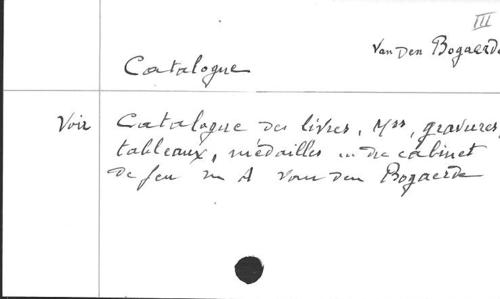 III
Van Den Bogaerde
Catalogue
Voir Catalogue des livres, Mss, gravures,
tableaux, médailles ... du cabinet
de feu M A van den Bogaerde